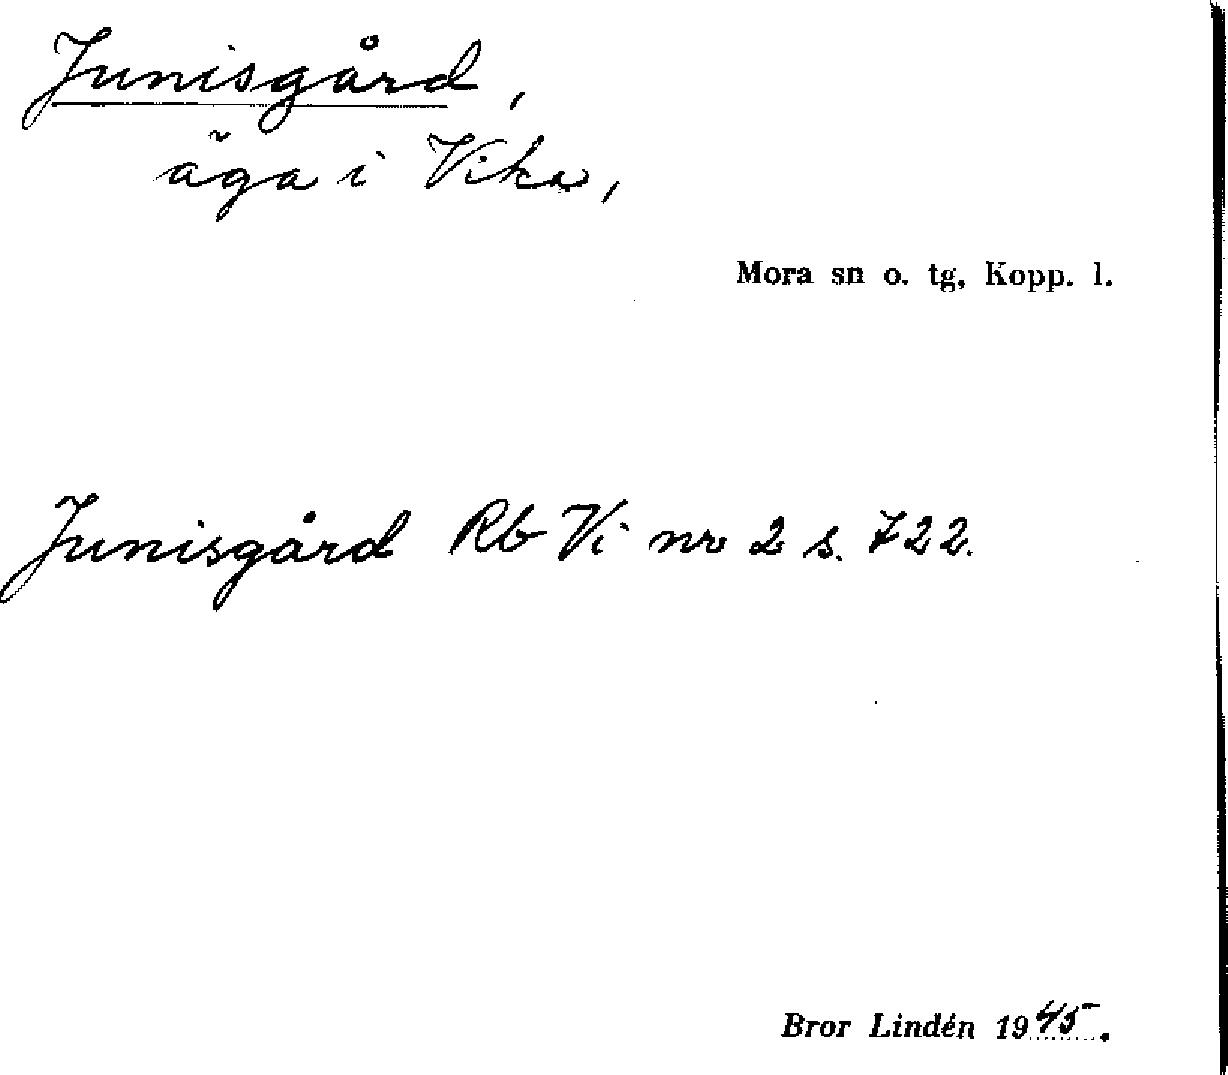 Junisgård,
äga i Vika,
Mora sn o. tg, Kopp. l.
Junisgård Rb Vi nr 2 s. 722.
Bror Lindén 1945.